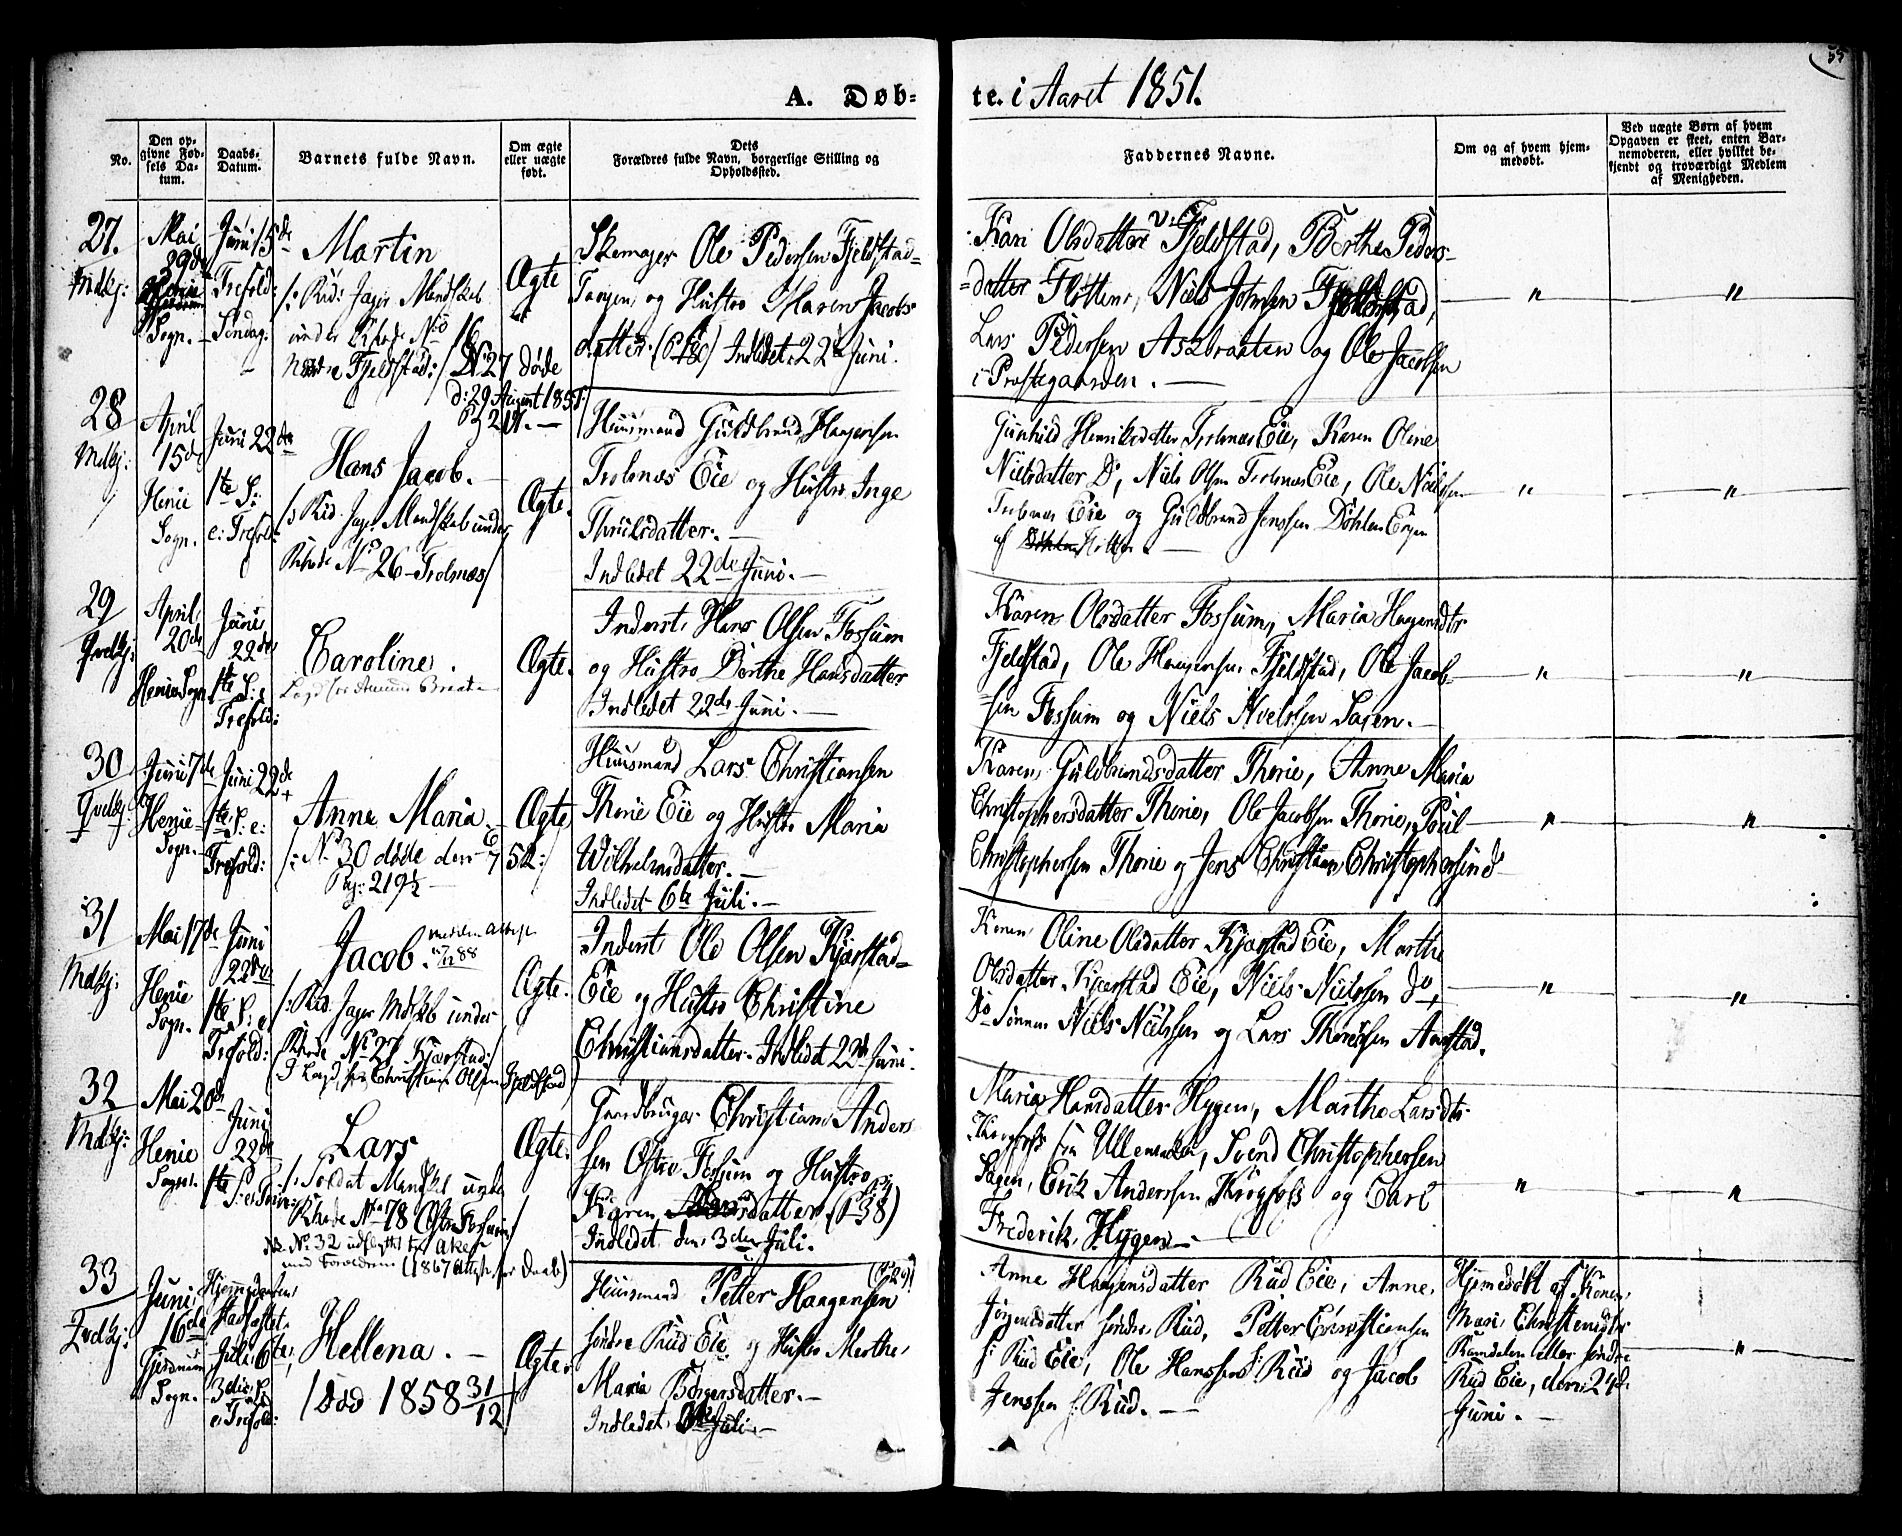 55
A. Døb-
te. i Aaret 1851.
No.
Den op-
givne Fød-
sels Da-
tum.
Daabs-
Datum.
Barnets fulde Navn.
Om ægte
eller uægte
født.
Dets
Forældres fulde Navn, borgerlige Stilling og
Opholdssted.
Faddernes Navne.
Om og af hvem hjem-
medøbt.
Ved uægte Børn af hvem
Opgaven er skeet, enten Bar-
nemoderen, eller hvilket be-
kjendt og troværdigt Medlem
af Menigheden.
27.
Mai
29de
Sogn.
Juni 15de
Trefold:
Søndag.
Martin
/: Rid: Jæger Mandskab
under Rhode No 16
nedre Fjeldstad:/ No 27 døde
d: 29 August 1851:
Ægte
Skomager Ole Pedersen Fjeldstad-
Tangen og Hustro Maren Jacobs-
datter. Indledet 22de Juni.
Kari Olsdatter Fjeldstad, Berthe Peders-
datter Flotten, Niels Johnsen Fjeldstad,
Lars Pedersen Asbraaten og Ole Jacobsen
i Præstegaarden.
" "
28
Mdkj:
April
15de
Henie
Sogn.
Juni 22de
1ste S:
e: Trefold:
Hans Jacob.
/: Rid. Jæger Mandskab under
Rhode No 26 Trolnæs/
Ægte.
Huusmand Guldbrand Haagensen
Trolnæs Eie og Hustro Inge
Thrulsdatter.
Indledet 22de Juni.
Gunhild Henriksdatter Trolnæs Eie, Karen Oline
Nielsdatter Do, Niels Olsen Trolnæs Eie, Ole Nielsen
Trolnæs Eie og Guldbrand Jenssen Døhlen Engen
af
" "
29
Qvdkj:
April
20de
Henie Sogn
Juni
22de
1ste S: e
Trefold:
Caroline.
Ægte.
Inderst Hans Olsen Fossum
og Hustro Dorthe Hansdatter
Indledet 22de Juni.
Karen Olsdatter Fossum, Maria Haagensdtr
Fjeldstad, Ole Haagensen Fjeldstad, Ole Jacob-
sen Fossum og Niels Nielsen Sagen.
" "
30
Qvdkj:
Juni 7de
Henie
Sogn.
Juni 22de
1ste S: e:
Trefold:
Anne Maria.
/: No 30 døde den 52:/
Pag: 219½
Ægte
Huusmand Lars Christiansen
Thorie Eie og Hustro Maria
Wilhelmsdatter.
Indledet 6te Juli.
Karen Guldbrandsdatter Thorie, Anne Maria
Christophersdatter Thorie, Ole Jacobsen Thorie, Poul
Christophersen Thorie og Jens Christian Christophersen do
" "
31
Mdkj:
Mai 17de
Henie
Sogn.
Juni
22de
1ste S: e
Trefold:
Jacob.
/: Rid. Jæger Mdskb under
Rhode No 27 Kjærstad:/
Ægte.
Inderst Ole Olsen Kjærstad-
Eie og Hustro Christine
Christiansdatter. Indledet 22de Juni.
Karen Oline Olsdatter Kjærstad Eie, Marthe
Olsdatter Kjærstad Eie, Niels Nielssen do,
Do Sønnen Niels Nielssen og Lars Thoressen Aarstad.
" "
32
Mdkj:
Mai 20de
Henie
Sogn.
Juni
22de
1ste S: e: Trin:
Lars
/: Soldat Mandskb under
Rhode No 78 Østre Fossum/
NB. No 32 udflyttet til Aker
med Forældrene (1867 Attest for Daab)
Ægte.
Gaardbruger Christian Anders-
sen Østre Fossum og Hustro
Karen datter (P 38)
Indledet den 3die Juli.
Maria Hansdatter Hygen, Marthe Larsdtr
fra Ullensaker, Svend Christophersen
Sagen, Erik Anderssen Krogfoss og Carl
Frederik Hygen.
" "
33
Qvdkj:
Juni
16de
Gjerdrum
Sogn.
Hjemmedaaben
stadfæstet
Juli 6te,
3die S:
e: Trefold:
Hellena.
/død 1858 31/12/
Ægte
Huusmand Petter Haagensen
søndre Rud Eie og Hustro Marthe
Maria Børgersdatter.
Indledet Juli.
Anne Haagensdatter Rud Eie, Anne
Jørgensdatter søndre Rud, Petter Christiansen
s: Rud Eie, Ole Hanssen s: Rud og Jacob
Jenssen s: Rud.
Hjemedøbt af Konen
Mari Christensdtr
Ramdalen eller søndre
Rud Eie, den 24de
Juni.
"